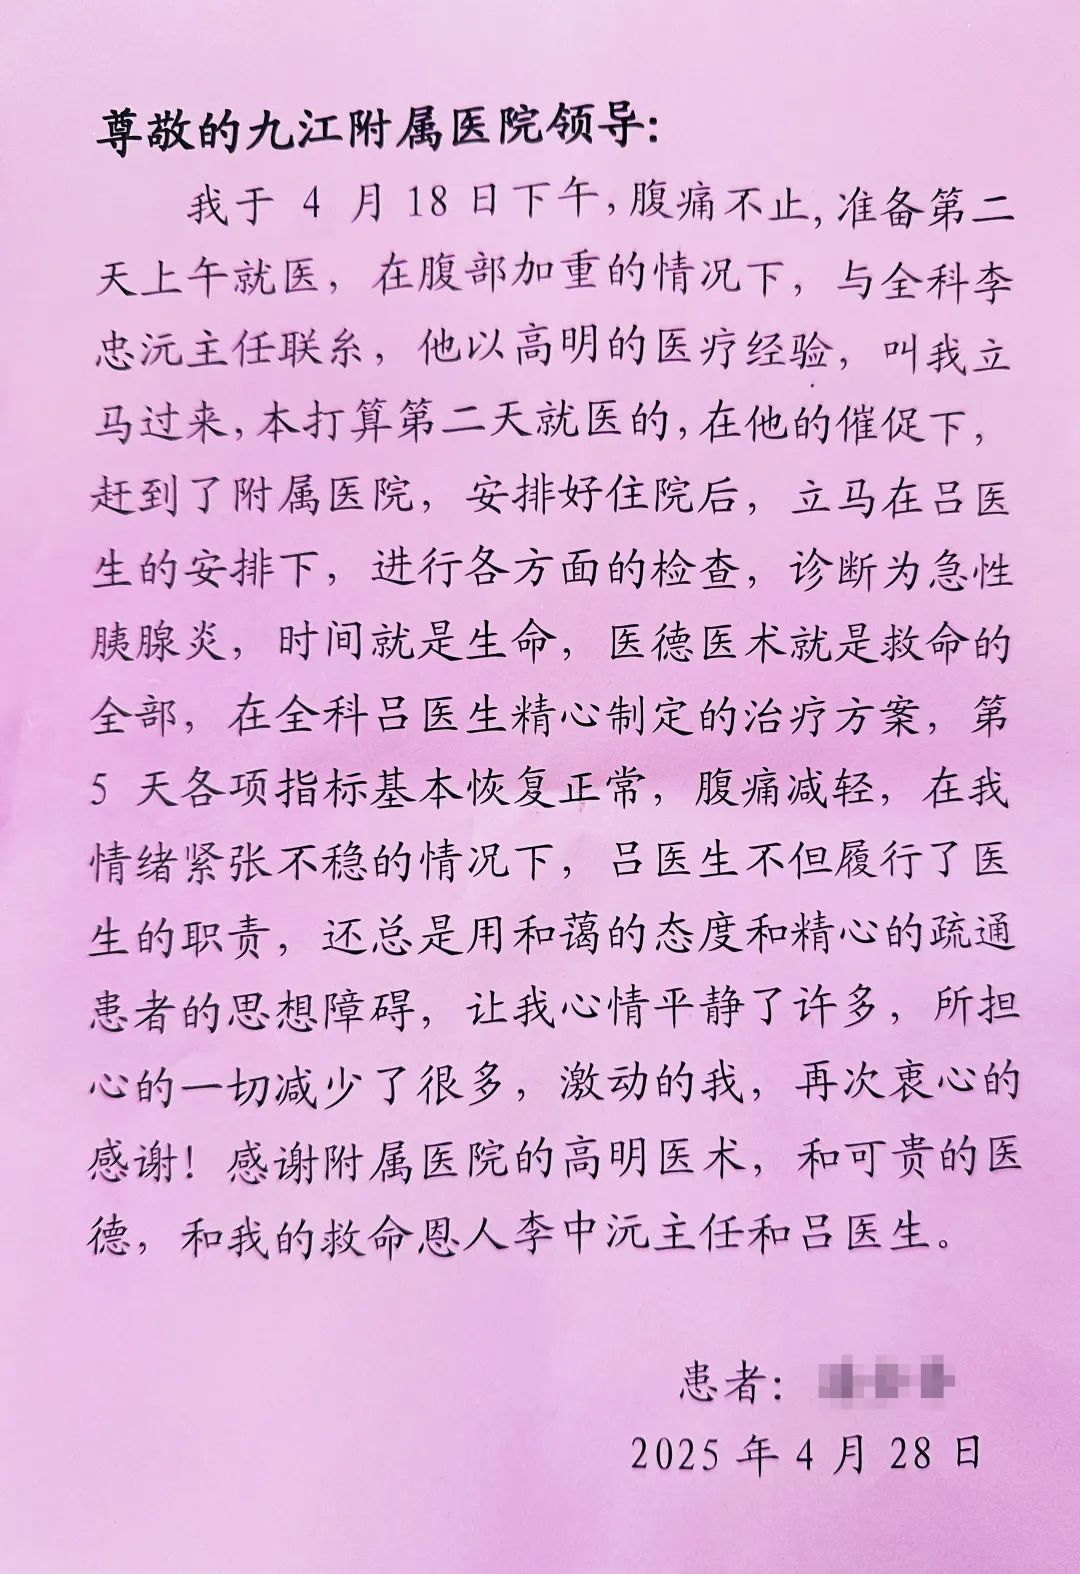 尊敬的九江附属医院领导:
我于 4 月 18 日下午,腹痛不止,准备第二
天上午就医，在腹部加重的情况下，与全科李
忠沅主任联糸，他以高明的医疗经验，叫我立
马过来,本打算第二天就医的,在他的催促下,
赶到了附属医院，安排好住院后，立马在吕医
生的安排下，进行各方面的检查，诊断为急性
胰腺炎，时间就是生命，医德医术就是救命的
全部，在全科吕医生精心制定的治疗方案，第
5 天各项指标基本恢复正常，腹痛减轻，在我
情绪紧张不稳的情况下，吕医生不但履行了医
生的职责，还总是用和蔼的态度和精心的疏通
患者的思想障碍，让我心情平静了许多，所担
心的一切减少了很多，激动的我，再次衷心的
感谢！感谢附属医院的高明医术，和可贵的医
德，和我的救命恩人李中沅主任和吕医生。
患者：
2025 年 4 月 28 日